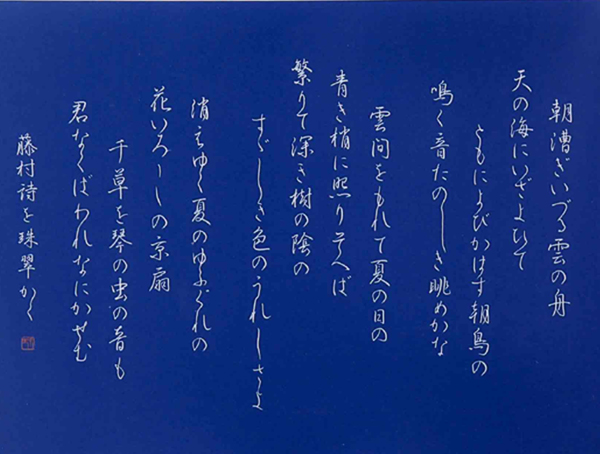 朝漕ぎいづる雲の舟
天の海にいざよひて
ともによびかはす朝鳥の
鳴く音たのしき眺めかな
雲間をもれて夏の日の
青き梢に照りそへば
繁りて深き樹の陰の
すゞしき色のうれしさよ
消えゆく夏のゆふぐれの
花いろ〳〵の京扇
千草を琴の虫の音も
君なくばわれなにかせむ
藤村詩を珠翠かく